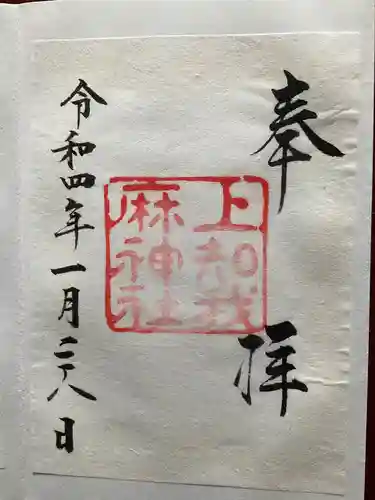 奉拝
上知我
麻神社
令和四年一月二八日